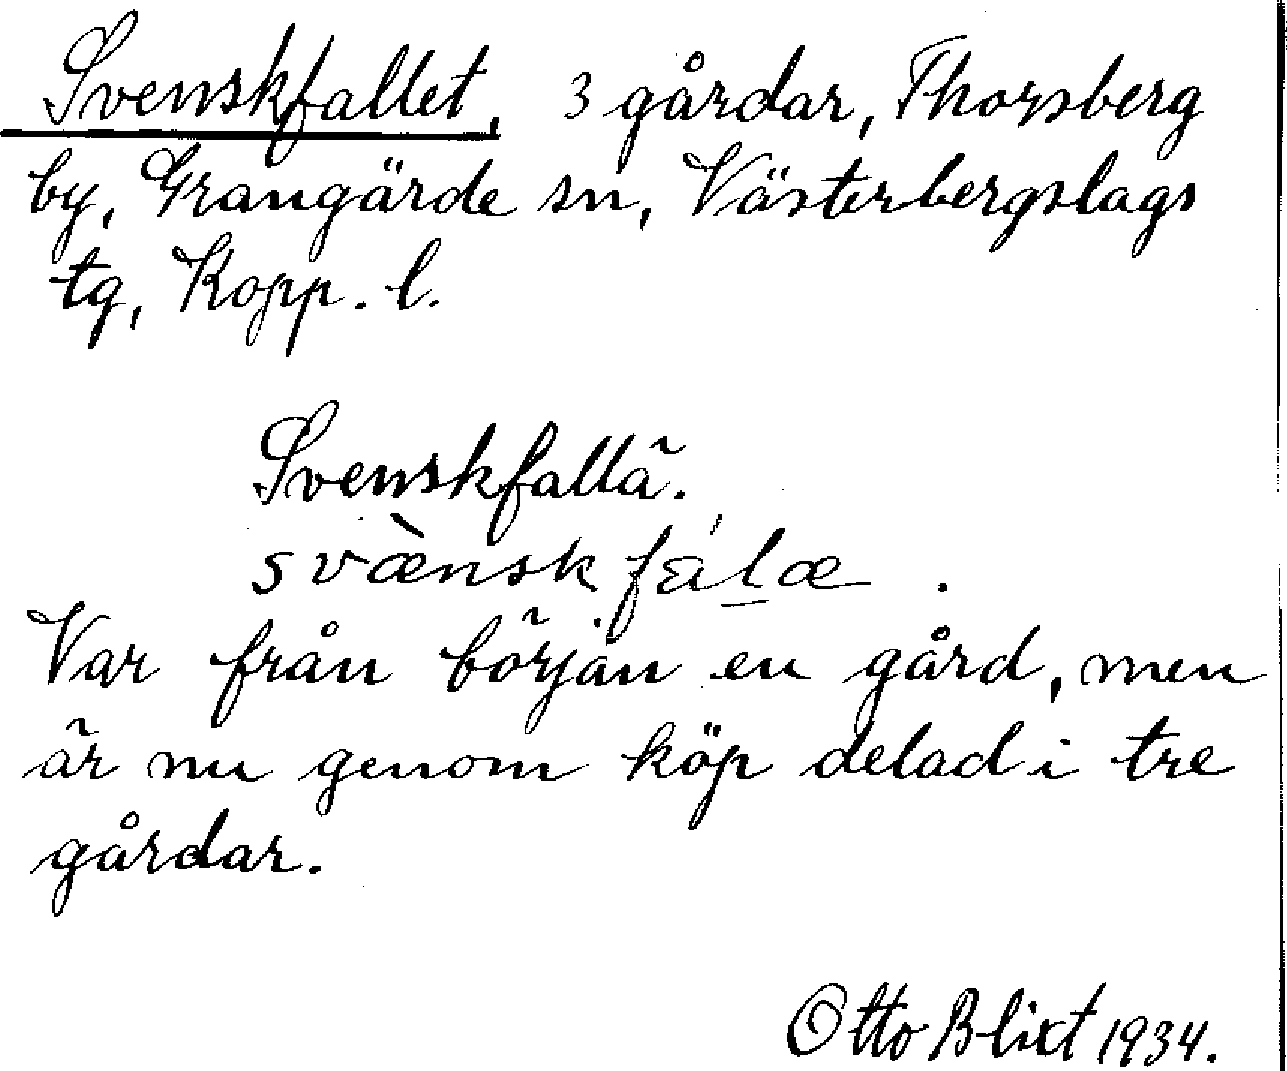 Svenskfallet, 3 gårdar, Thorsberg
by, Grangärde sn, Västerbergslags
tg, Kopp. l.
Svenskfallä.
svænskfalæ.
Var från början en gård, men
är nu genom köp delad i tre
gårdar.
Otto Blixt 1934.